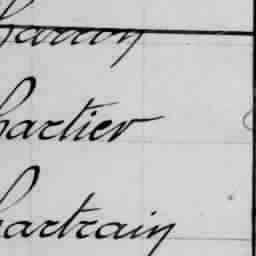 hartier
hartrain